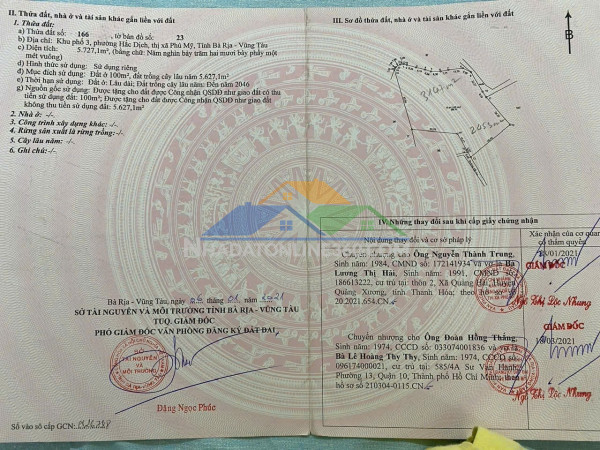 II. Thửa đất, nhà ở và tài sản khác gắn liền với đất
1. Thửa đất:
a) Thửa đất số: 166 tờ bản đồ số: 23
b) Địa chỉ: Khu phố 3, phường Hắc Dịch, thị xã Phú Mỹ, Tỉnh Bà Rịa - Vũng Tàu
c) Diện tích: 5.727,1m², (bằng chữ: Năm nghìn bảy trăm hai mươi bảy phẩy một mét vuông)
d) Hình thức sử dụng: Sử dụng riêng
đ) Mục đích sử dụng: Đất ở 100m², đất trồng cây lâu năm 5.627,1m²
e) Thời hạn sử dụng: Đất ở: Lâu dài; Đất trồng cây lâu năm: Đến năm 2046
g) Nguồn gốc sử dụng: Được tặng cho đất được Công nhận QSDĐ như giao đất có thu
tiền sử dụng đất: 100m²; Được tặng cho đất được Công nhận QSDĐ như giao đất
không thu tiền sử dụng đất: 5.627,1m²
2. Nhà ở: -/-
3. Công trình xây dựng khác: -/-
4. Rừng sản xuất là rừng trồng: -/-
5. Cây lâu năm: -/-
6. Ghi chú: -/-
Bà Rịa - Vũng Tàu, ngày tháng 01 năm 2021
SỞ TÀI NGUYÊN VÀ MÔI TRƯỜNG TỈNH BÀ RỊA - VŨNG TÀU
TUQ. GIÁM ĐỐC
PHÓ GIÁM ĐỐC VĂN PHÒNG ĐĂNG KÝ ĐẤT ĐAI
SỞ
TÀI NGUYÊN
VÀ
MÔI TRƯỜNG
Đặng Ngọc Phúc
Số vào sổ cấp GCN:
III. Sơ đồ thửa đất, nhà ở và tài sản khác gắn liền với đất
B
IV. Những thay đổi sau khi cấp giấy chứng nhận
Nội dung thay đổi và cơ sở pháp lý
Xác nhận của cơ quan
có thẩm quyền
Chuyển nhượng cho Ông Nguyễn Thành Trung,
Sinh năm: 1984, CMND số: 172141934 và vợ là Bà
Lương Thị Hải, Sinh năm: 1991, CMND số:
186613222, cư trú tại: thôn 2, Xã Quảng Hải, Huyện
Quảng Xương, tỉnh Thanh Hóa; theo hồ sơ số
20.2021.654.CN
/01/2021
GIÁM ĐỐC
Ngô Thị Lộc Nhung
Chuyển nhượng cho Ông Đoàn Hồng Thắng,
Sinh năm: 1974, CCCD số: 033074001836 và vợ là
Bà Lê Hoàng Thy Thy, Sinh năm: 1974, CCCD số:
096174000021, cư trú tại: 585/4A Sư Vạn Hạnh,
Phường 13, Quận 10, Thành phố Hồ Chí Minh; theo
hồ sơ số 210304-0115.CN
/03/2021
GIÁM ĐỐC
Ngô Thị Lộc Nhung